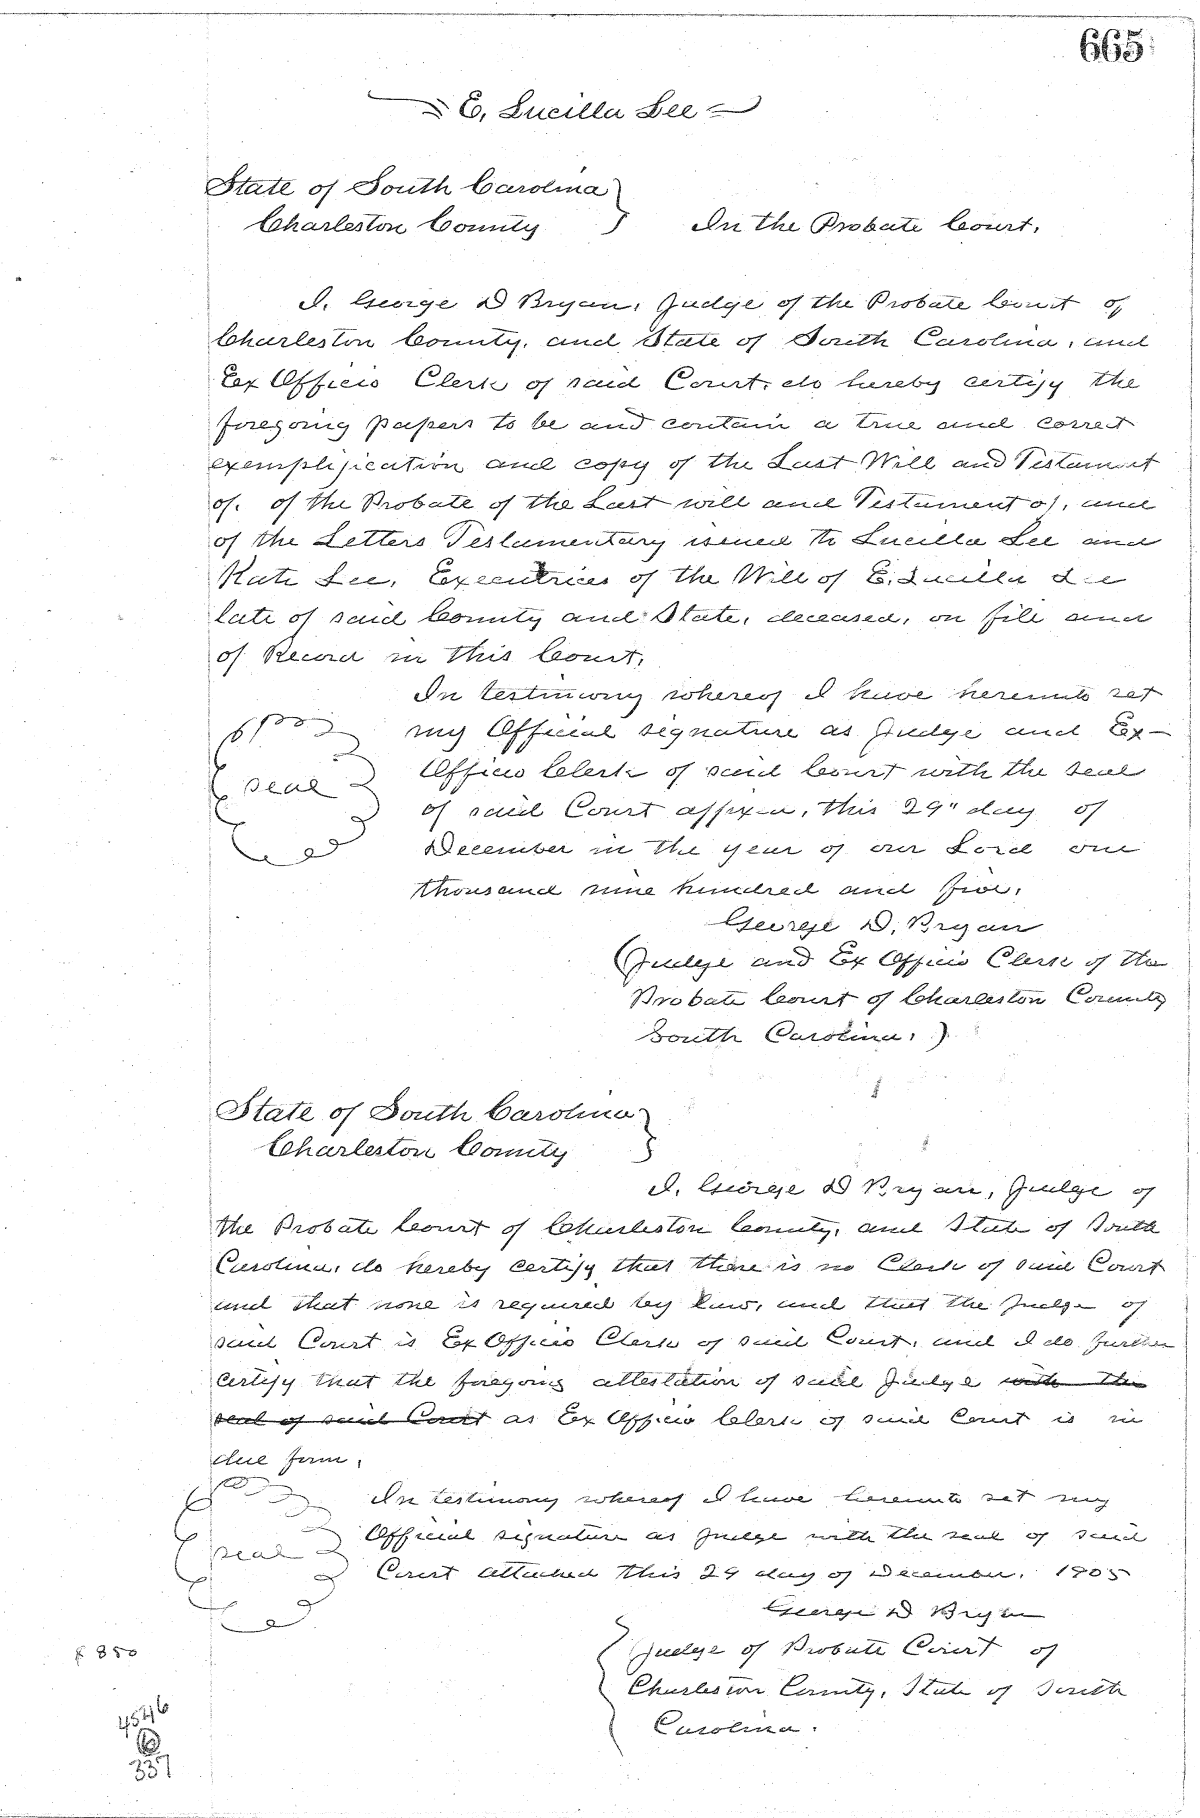 665
E. Lucilla Lee
State of South Carolina
Charleston County
In the Probate Court.
I, George D Bryan, Judge of the Probate Court of
Charleston County, and State of South Carolina, and
Ex Officio Clerk of said Court, do hereby certify the
foregoing papers to be and contain a true and correct
exemplification and copy of the Last Will and Testament
of, of the Probate of the Last will and Testament of, and
of the Letters Testamentary issued to Lucilla Lee and
Kate Lee, Executrices of the Will of E. Lucilla Lee
late of said County and State, deceased, on file and
of Record in this Court.
In testimony whereof I have hereunto set
my Official signature as Judge and Ex-
Officio Clerk of said Court with the seal
of said Court affixed, this 29" day of
December in the year of our Lord one
thousand nine hundred and five.
seal
George D. Bryan
(Judge and Ex Officio Clerk of the
Probate Court of Charleston County
South Carolina.)
State of South Carolina
Charleston County
I, George D Bryan, Judge of
the Probate Court of Charleston County, and State of South
Carolina, do hereby certify that there is no Clerk of said Court
and that none is required by law, and that the Judge of
said Court is Ex Officio Clerk of said Court, and I do further
certify that the foregoing attestation of said Judge with the
seal of said Court as Ex Officio Clerk of said Court is in
due form.
In testimony whereof I have hereunto set my
Official signature as Judge with the seal of said
Court attached this 29 day of December, 1905
seal
George D Bryan
Judge of Probate Court of
Charleston County, State of South
Carolina.
850
4546
6
337